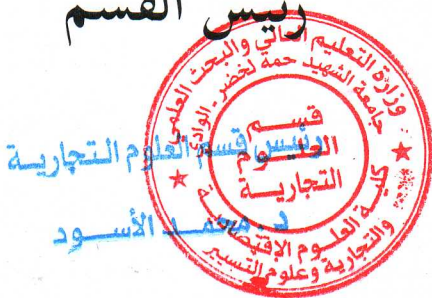 رئيس القسم
وزارة التعليم العالي والبحث العلمي
جامعة الشهيد حمه لخضر - الوادي
قسم
العلوم
التجارية
كلية العلوم الإقتصادية
والتجارية وعلوم التسيير
رئيس قسم العلوم التجارية
د. محمد الأسود